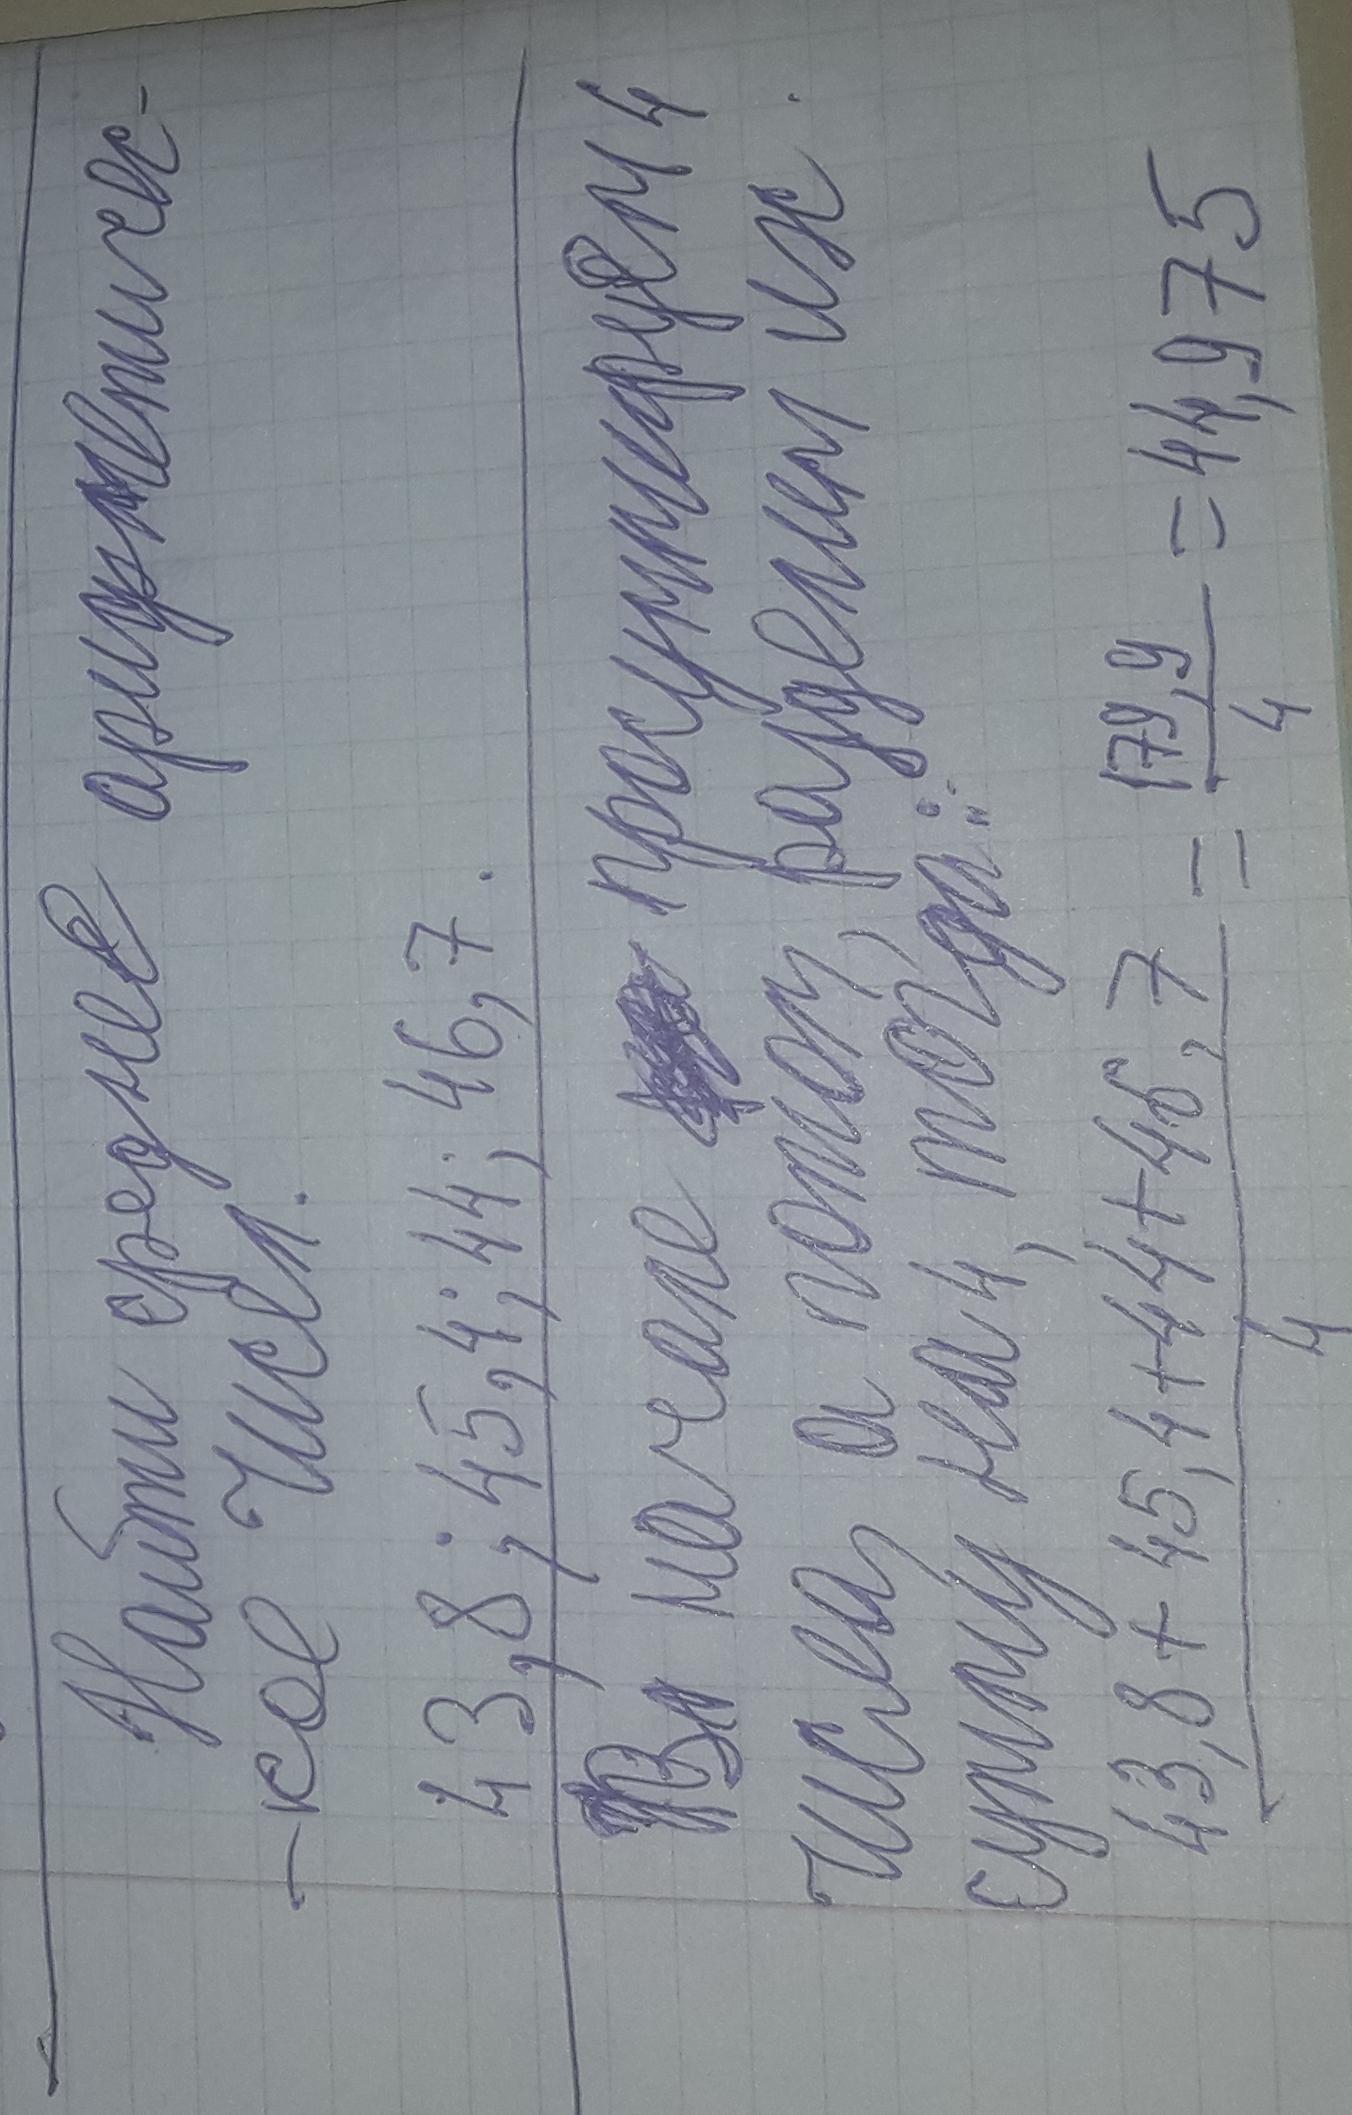 Найти среднее арифметичес-
-кое Чисел.
43,8; 45,4; 44; 46,7.
В начале просуммируем 4
Числа, а потом, разделим их
сумму на 4, тогда:
43,8+45,4+44+46,7 / 4 = 179,9 / 4 = 44,975